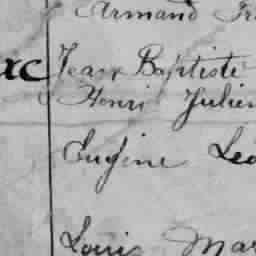 Armand Fr
xc Jean Baptiste
Henri Julien
Eugène Léo
Louis Mar